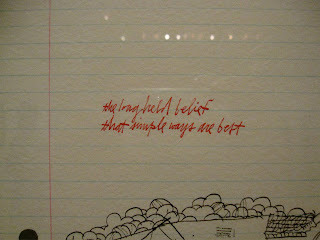 the long held belief
that simple ways are best